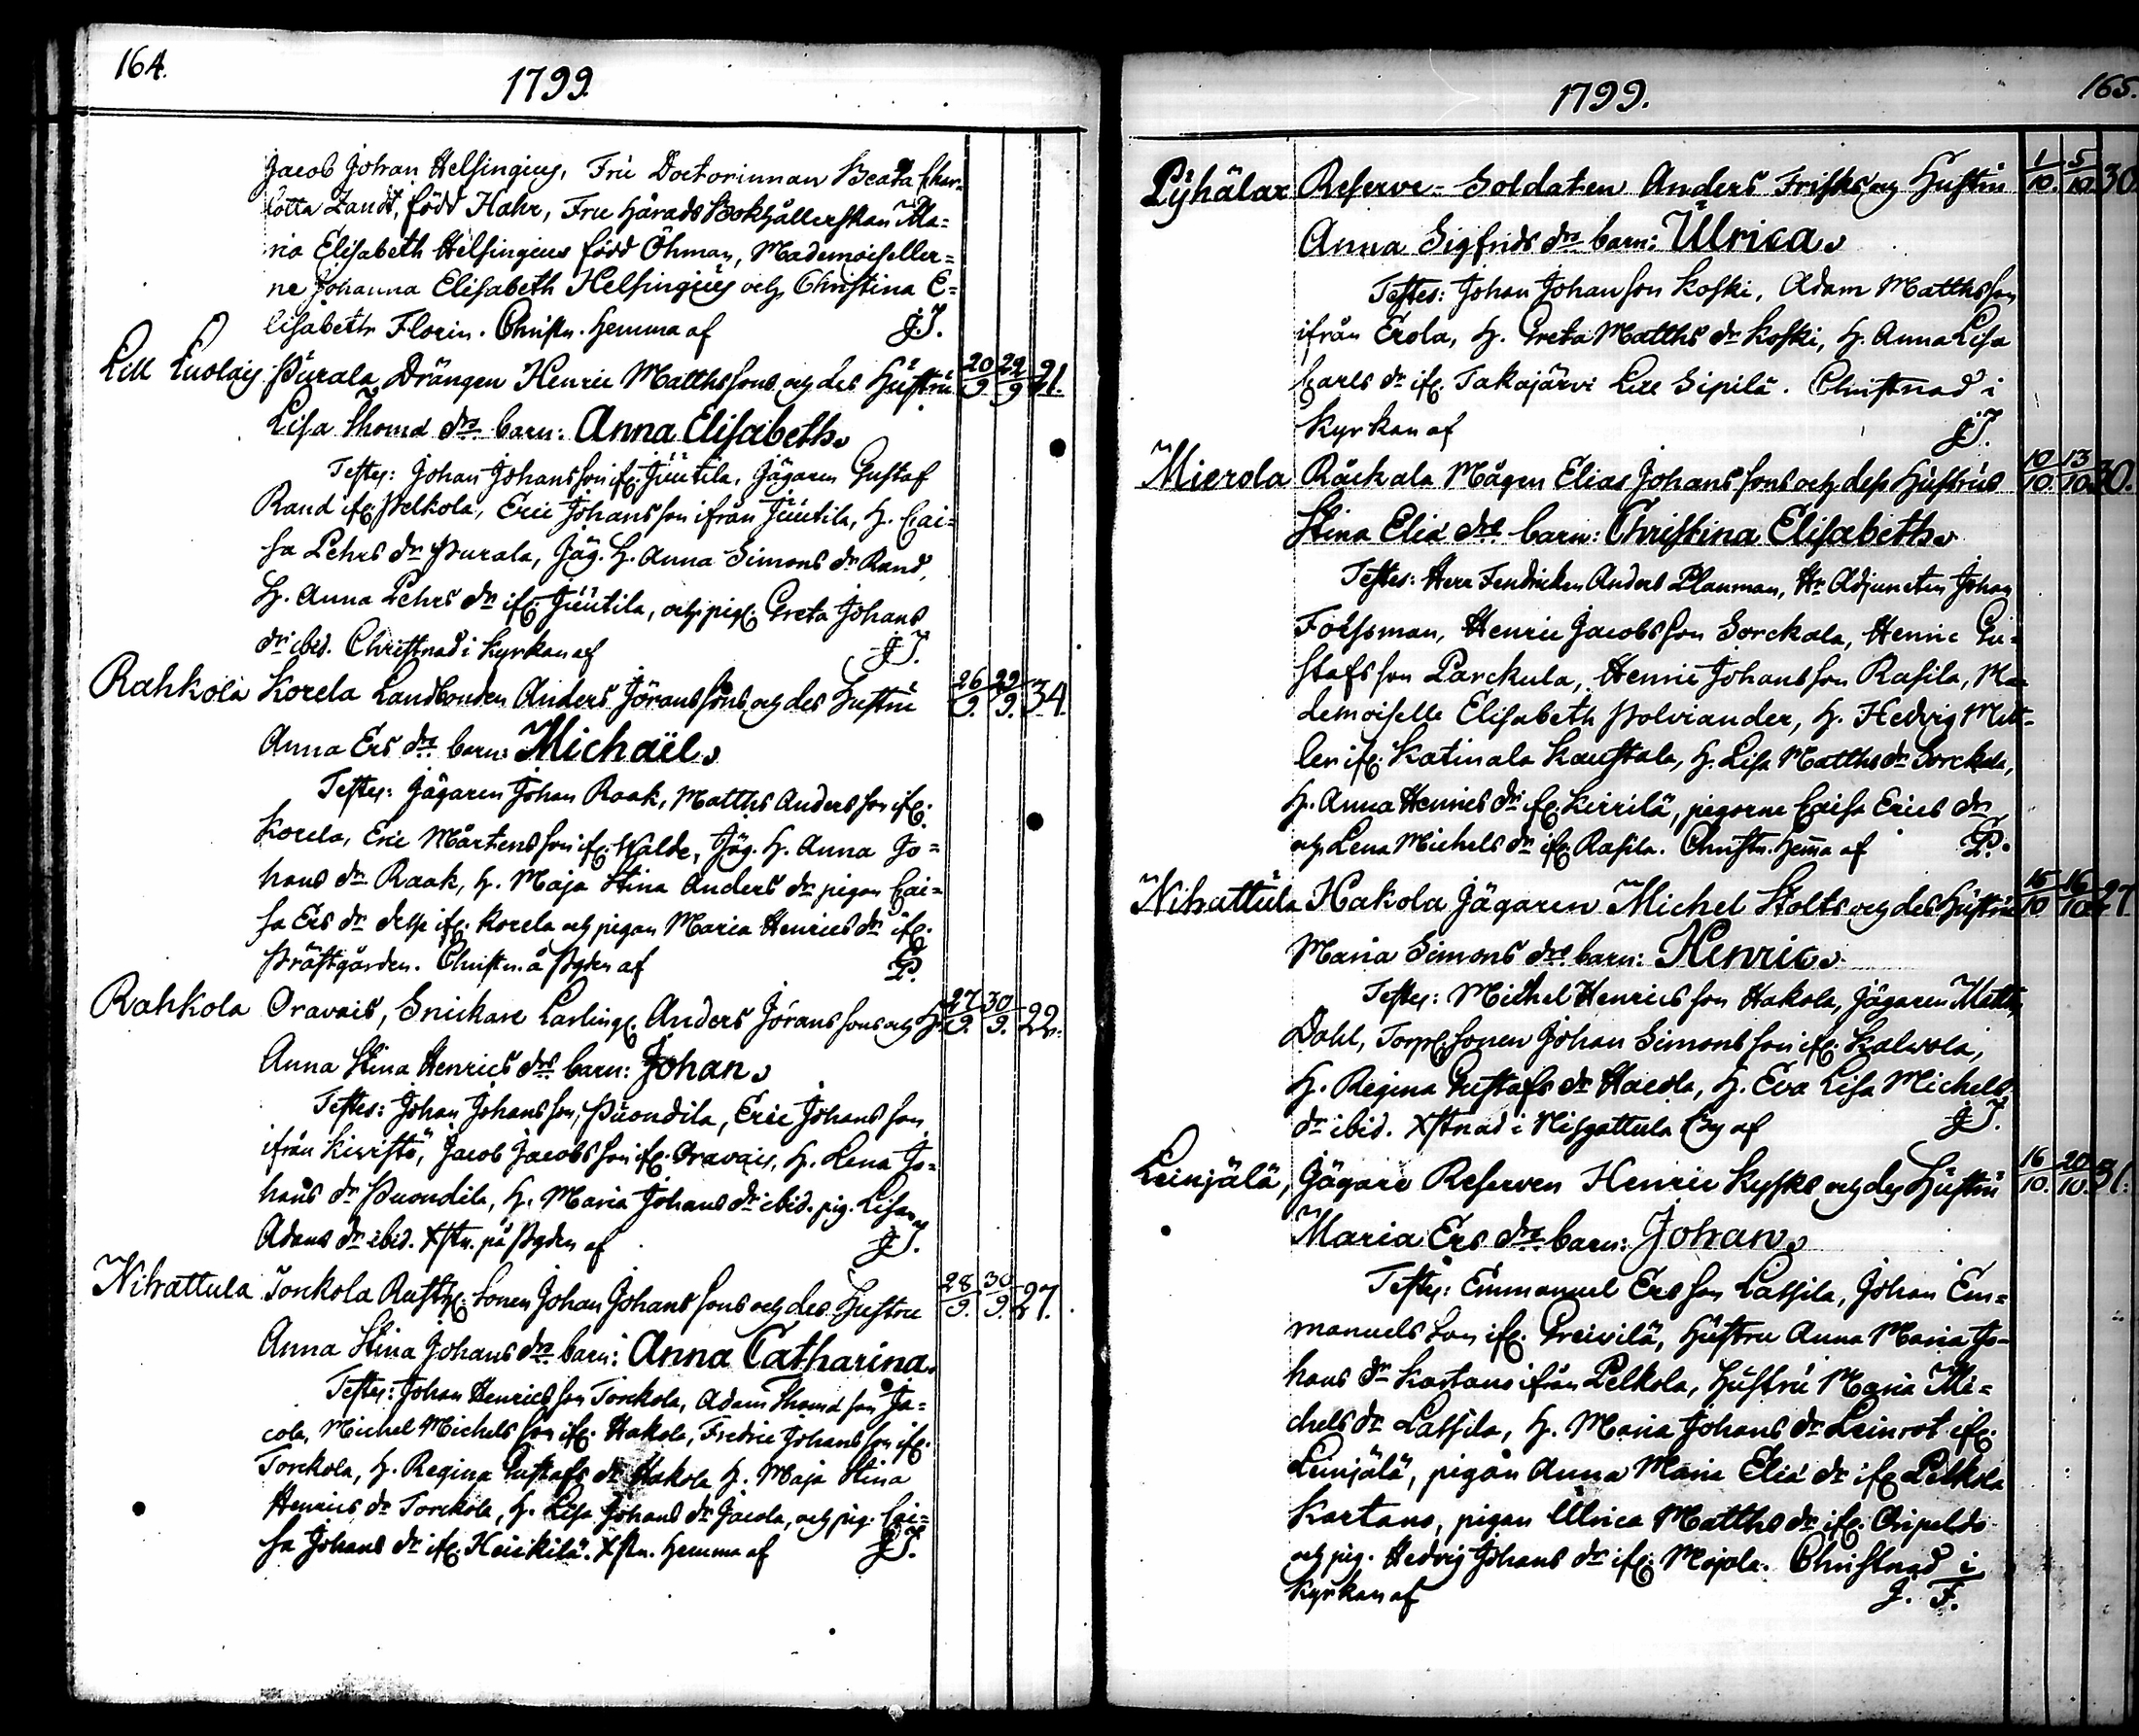 164.
1799.
Jacob Johan Helsingius, Fru Doctorinnan Beata Char-
lotta Zandt, född Hahr, Fru Härads Bokhållerskan Ma=
ria Elisabeth Helsingius född Öhman, Mademoiseller=
ne Johanna Elisabeth Helsingius och Christina E=
lisabeth Florin. Christn. hemma af JF.
Lill Luolais Purala Drängen Henric Matthssons och des Hustru 20/9 22/9 21.
Lisa Thomæ drs barn: Anna Elisabeth.
Testes: Johan Johansson ifr. Juutila, Jägaren Gustaf
Rand ifr. Pelkola, Eric Johansson ifrån Juutila, H. Cai=
sa Pehrs dr Purala, Jäg. H. Anna Simons dr Rand,
H. Anna Pehrs dr ifr. Juutila, och pig. Greta Johans
dr ibid. Christnad i Kyrkan af JF.
Rahkola Korela Landbonden Anders Jöranssons och des Hustru 26/9. 29/9. 34.
Anna Ers drs barn: Michaël.
Testes: Jägaren Johan Raak, Matths Andersson ifr.
Korela, Eric Mårtensson ifr. Walde, Jäg. H. Anna Jo=
hans dr Raak, H. Maja Stina Anders dr pigan Cai=
sa Ers dr desse ifr. Korela och pigan Maria Henrics dr ifr.
Prästgården. Christn. å Bygden af P.
Rahkola Oravais, Snickare Lärling. Anders Jöranssons och H. 27/9. 30/9. 22.
Anna Stina Henrics drs barn: Johan.
Testes: Johan Johansson, Puondila, Eric Johansson
ifrån Kiristö, Jacob Jacobsson ifr. Oravais, H. Lena Jo=
hans dr Puondila, H. Maria Johans dr ibid. pig. Lisa
Adams dr ibid. Xstn. på Bygden af JF.
Nihattula Torckola Rusth. Sonen Johan Johanssons och des Hustru 28/9. 30/9. 27.
Anna Stina Johans drs barn: Anna Catharina.
Testes: Johan Henricsson Torckola, Adam Thomæ son Ja=
cola, Michel Michelsson ifr. Hakola, Fredric Johansson ifr.
Torckola, H. Regina Gustafs dr Hakola H. Maja Stina
Henrics dr Torckola, H. Lisa Johans dr Jacola, och pig. Cai=
sa Johans dr ifr. Heickilä. Xstn. hemma af JF.
1799.
165.
Pyhälax Reserve-Soldaten Anders Frisks och Hustru 1/10. 5/10 30
Anna Sigfrids drs barn: Ulrica.
Testes: Johan Johansson Koski, Adam Matthsson
ifrån Erola, H. Greta Matths dr Koski, H. Anna Lisa
Carls dr ifr. Takajärvi Sipilä. Christnad i
Kyrkan af JF.
Mierola Räckala Mågen Elias Johanssons och dess Hustrus 10/10. 13/10. 30.
Stina Eliæ drs barn: Christina Elisabeth.
Testes: Herr Fendricken Anders Planman, Hr Adjuncten Johan
Forssman, Henric Jacobsson Sorckala, Henric Gu-
stafsson Parckula, Henric Johansson Rasila, Ma-
demoiselle Elisabeth Polviander, H. Hedvig Mell-
len ifr. Katinala Kaustala, H. Lisa Matths dr Sorckala,
H. Anna Henrics dr ifr. Kirrilä, pigorne Caisa Erics dr
och Lena Michels dr ifr. Rasila. Christn. hemma af P.
Nihattula Hakola Jägaren Michel Stolts och des Hustru 15/10 16/10 27
Maria Simons drs barn: Henric.
Testes: Michel Henricsson Hakola, Jägaren Matts
Dahl, Torp. Sonen Johan Simonsson ifr. Kalvola,
H. Regina Gustafs dr Hacola, H. Eva Lisa Michels
dr ibid. Xstnad i Nihattula By af JF.
Leinjälä, Jägare Reserven Henric Kysks och des Hustru 16/10. 20/10. 31.
Maria Ers drs barn: Johan.
Testes: Emmanuel Ersson Lassila, Johan Em=
manuels son ifr. Preivilä, Hustru Anna Maria Jo-
hans dr Kartano ifrån Pelkola, Hustru Maria Mi=
chels dr Lassila, H. Maria Johans dr Leinrot ifr.
Leinjälä, pigan Anna Maria Eliæ dr ifr. Pelkola
Kartano, pigan Ulrica Matths dr ifr.
och pig. Hedvig Johans dr ifr. Mojola. Christnad i
Kyrkan af J. F.